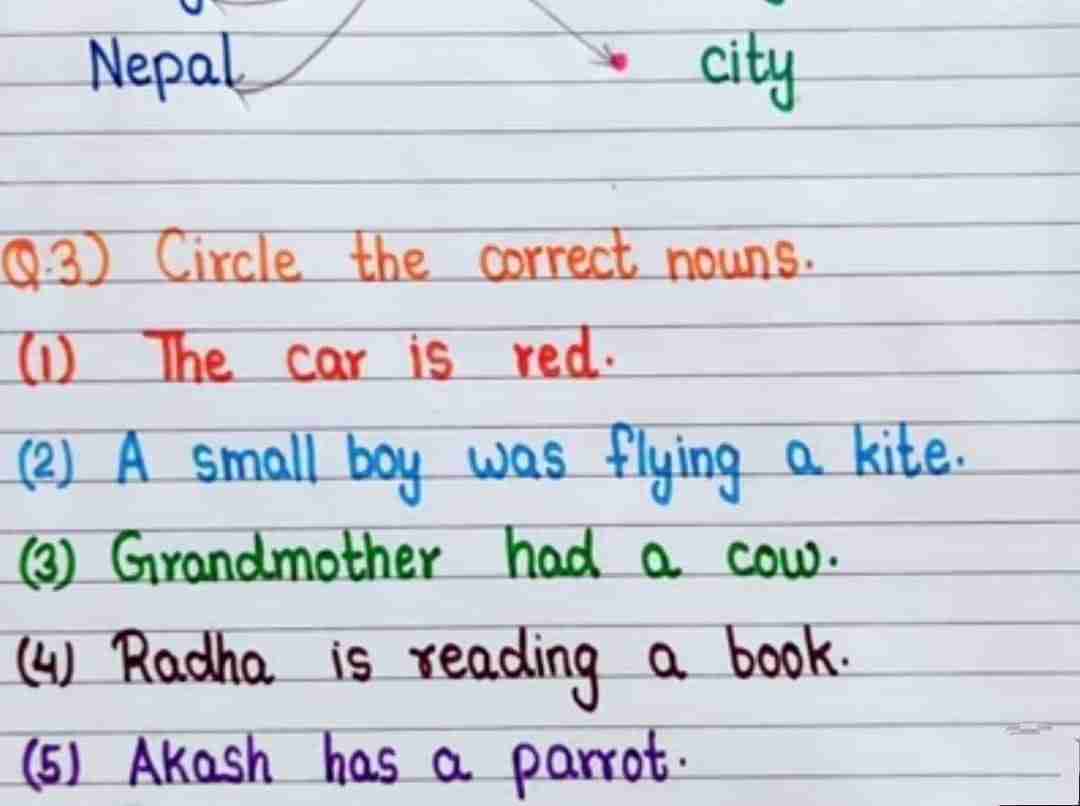 Nepal city
Q.3) Circle the correct nouns.
(1) The car is red.
(2) A small boy was flying a kite.
(3) Grandmother had a cow.
(4) Radha is reading a book.
(5) Akash has a parrot.